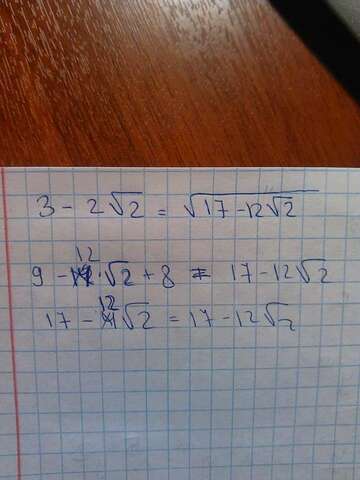 3 - 2√2 = √17 - 12√2
9 - 12 · √2 + 8 = 17 - 12√2
17 - 12√2 = 17 - 12√2